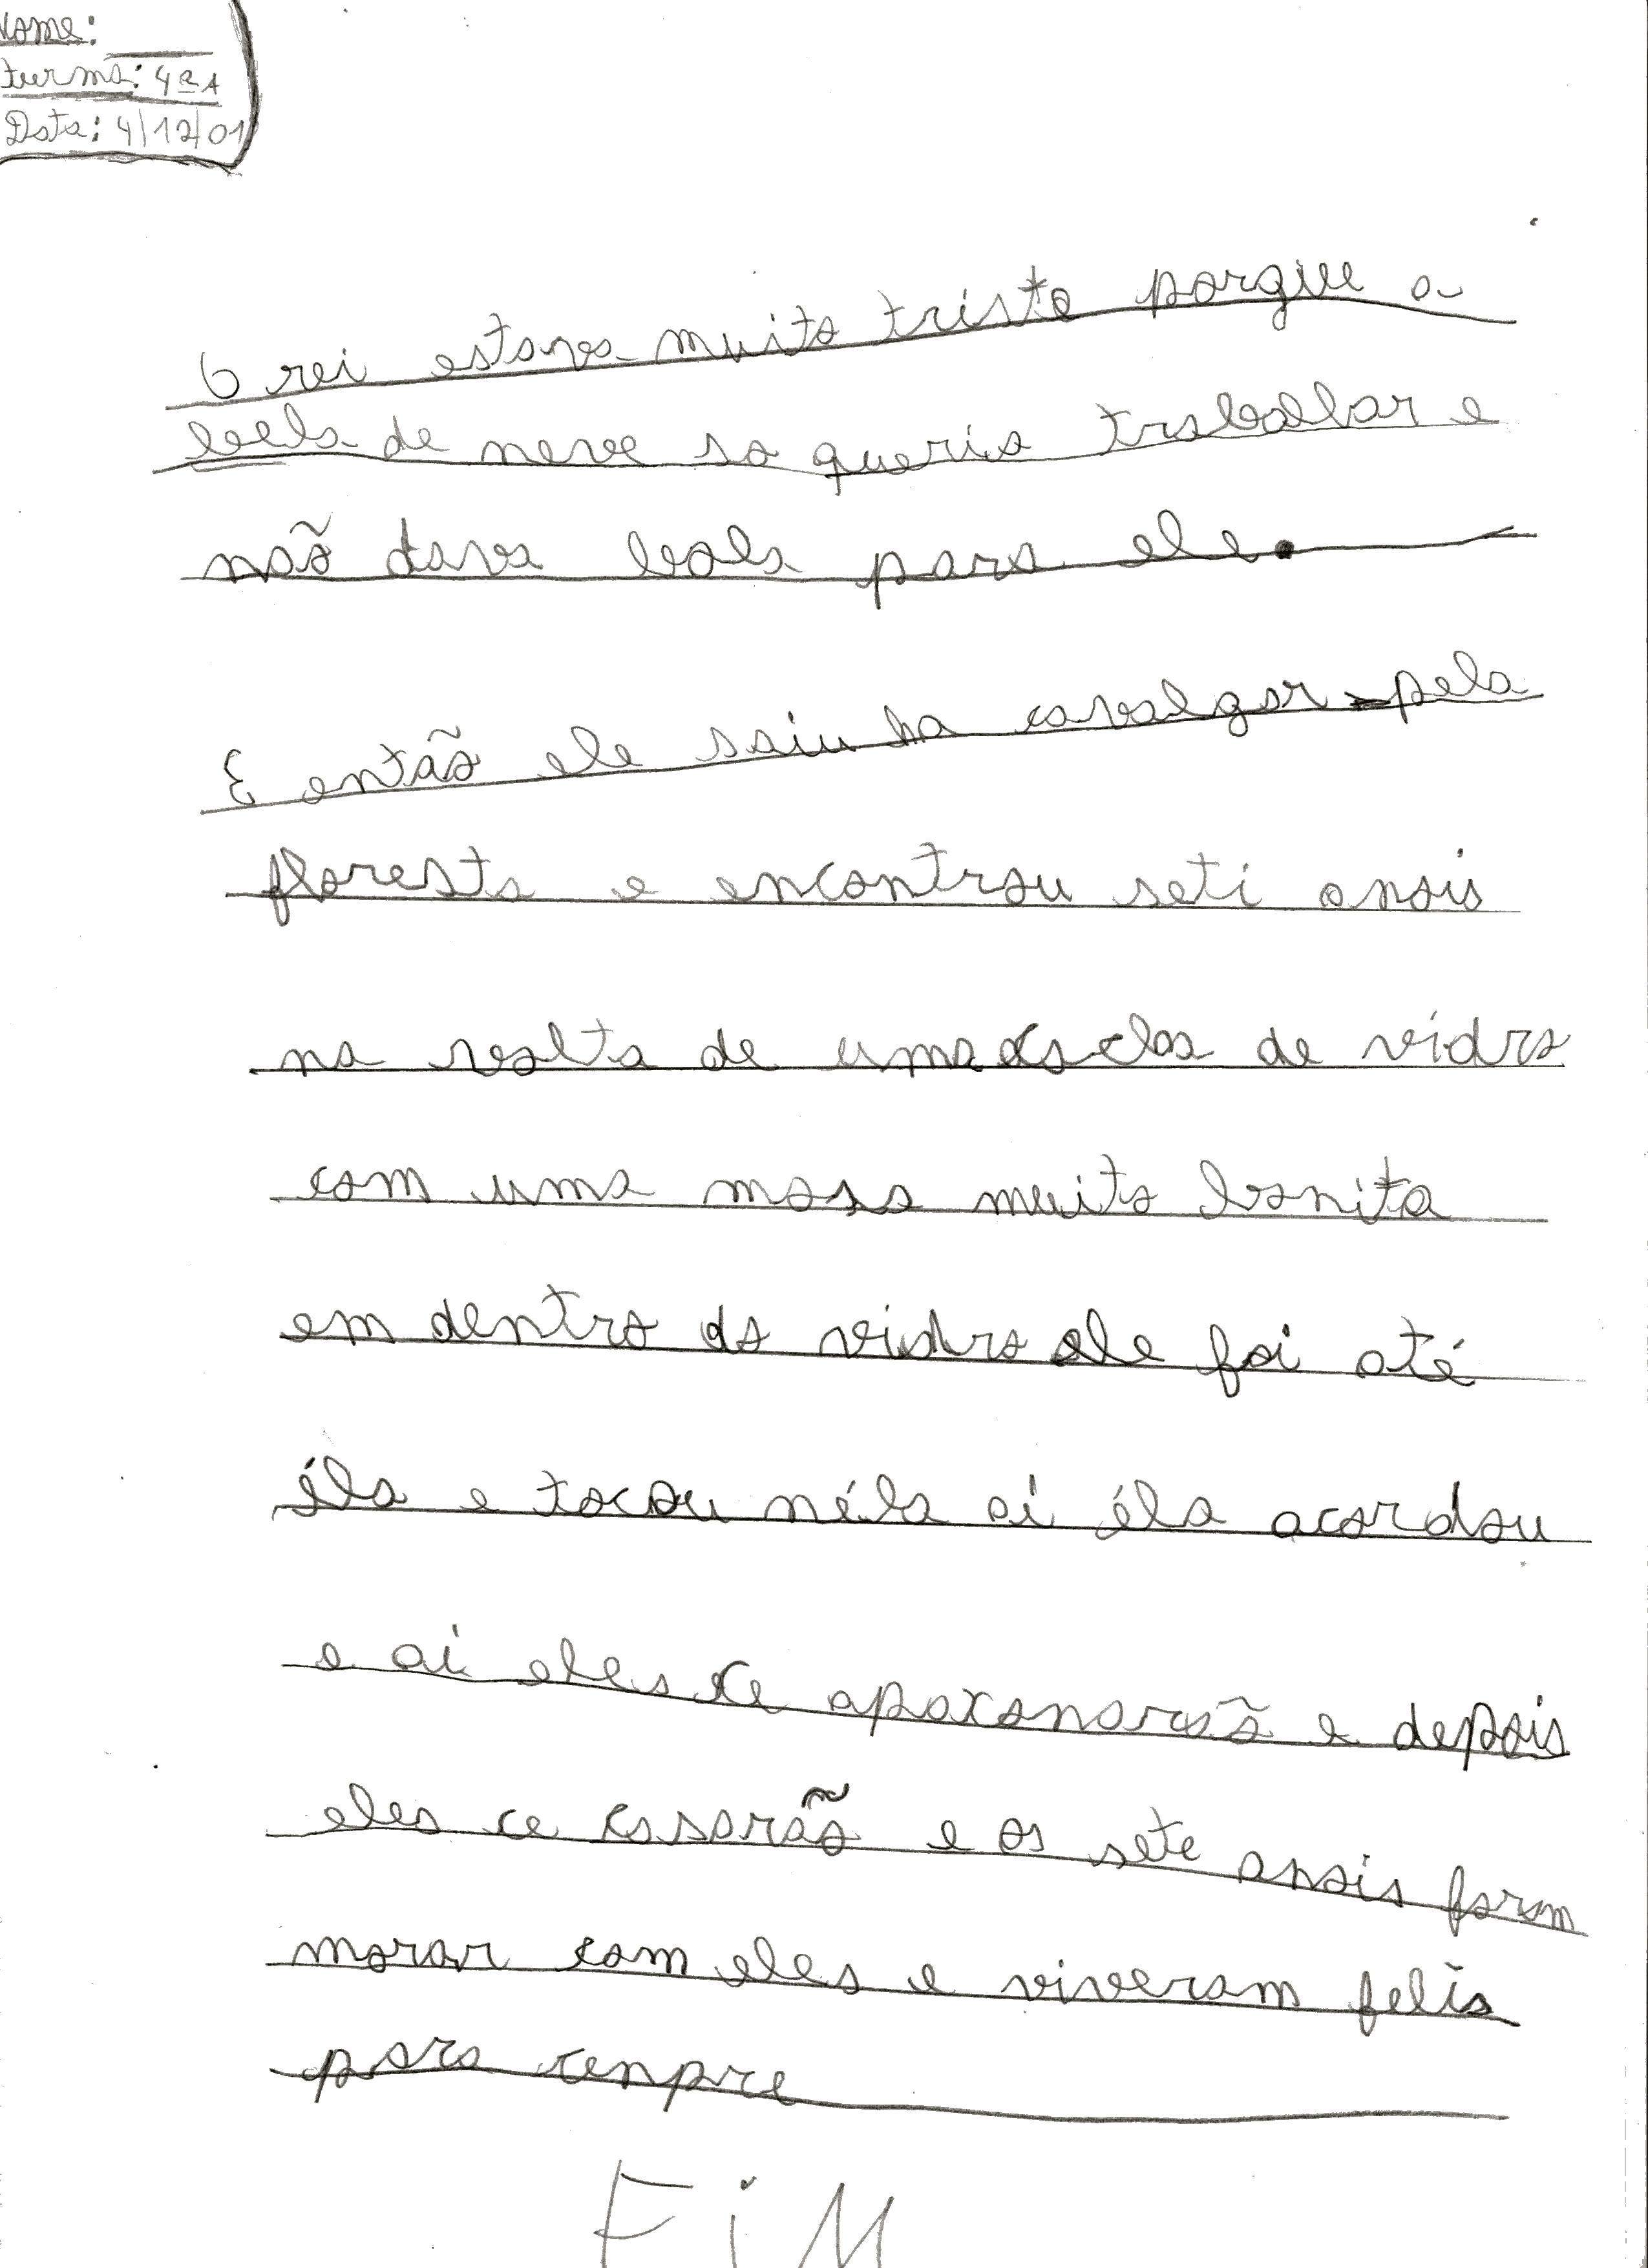 Nome:
turma: 4ª A
Data: 4/12/01
O rei estava muito triste porque a
bela de neve so queria trabalhar e
não dava bola para ele.
E então ele saiu ha cavalgar pela
floresta e encontrou seti anois
na volta de uma de vidro
com uma mosa muito bonita
em dentro do vidro ele foi até
éla e tocou néla ai éla acordou
e ai eles ce apaxonarão e depois
eles ce casarão e os sete anois foram
morar com eles e viveram felis
para cenpre
FiM